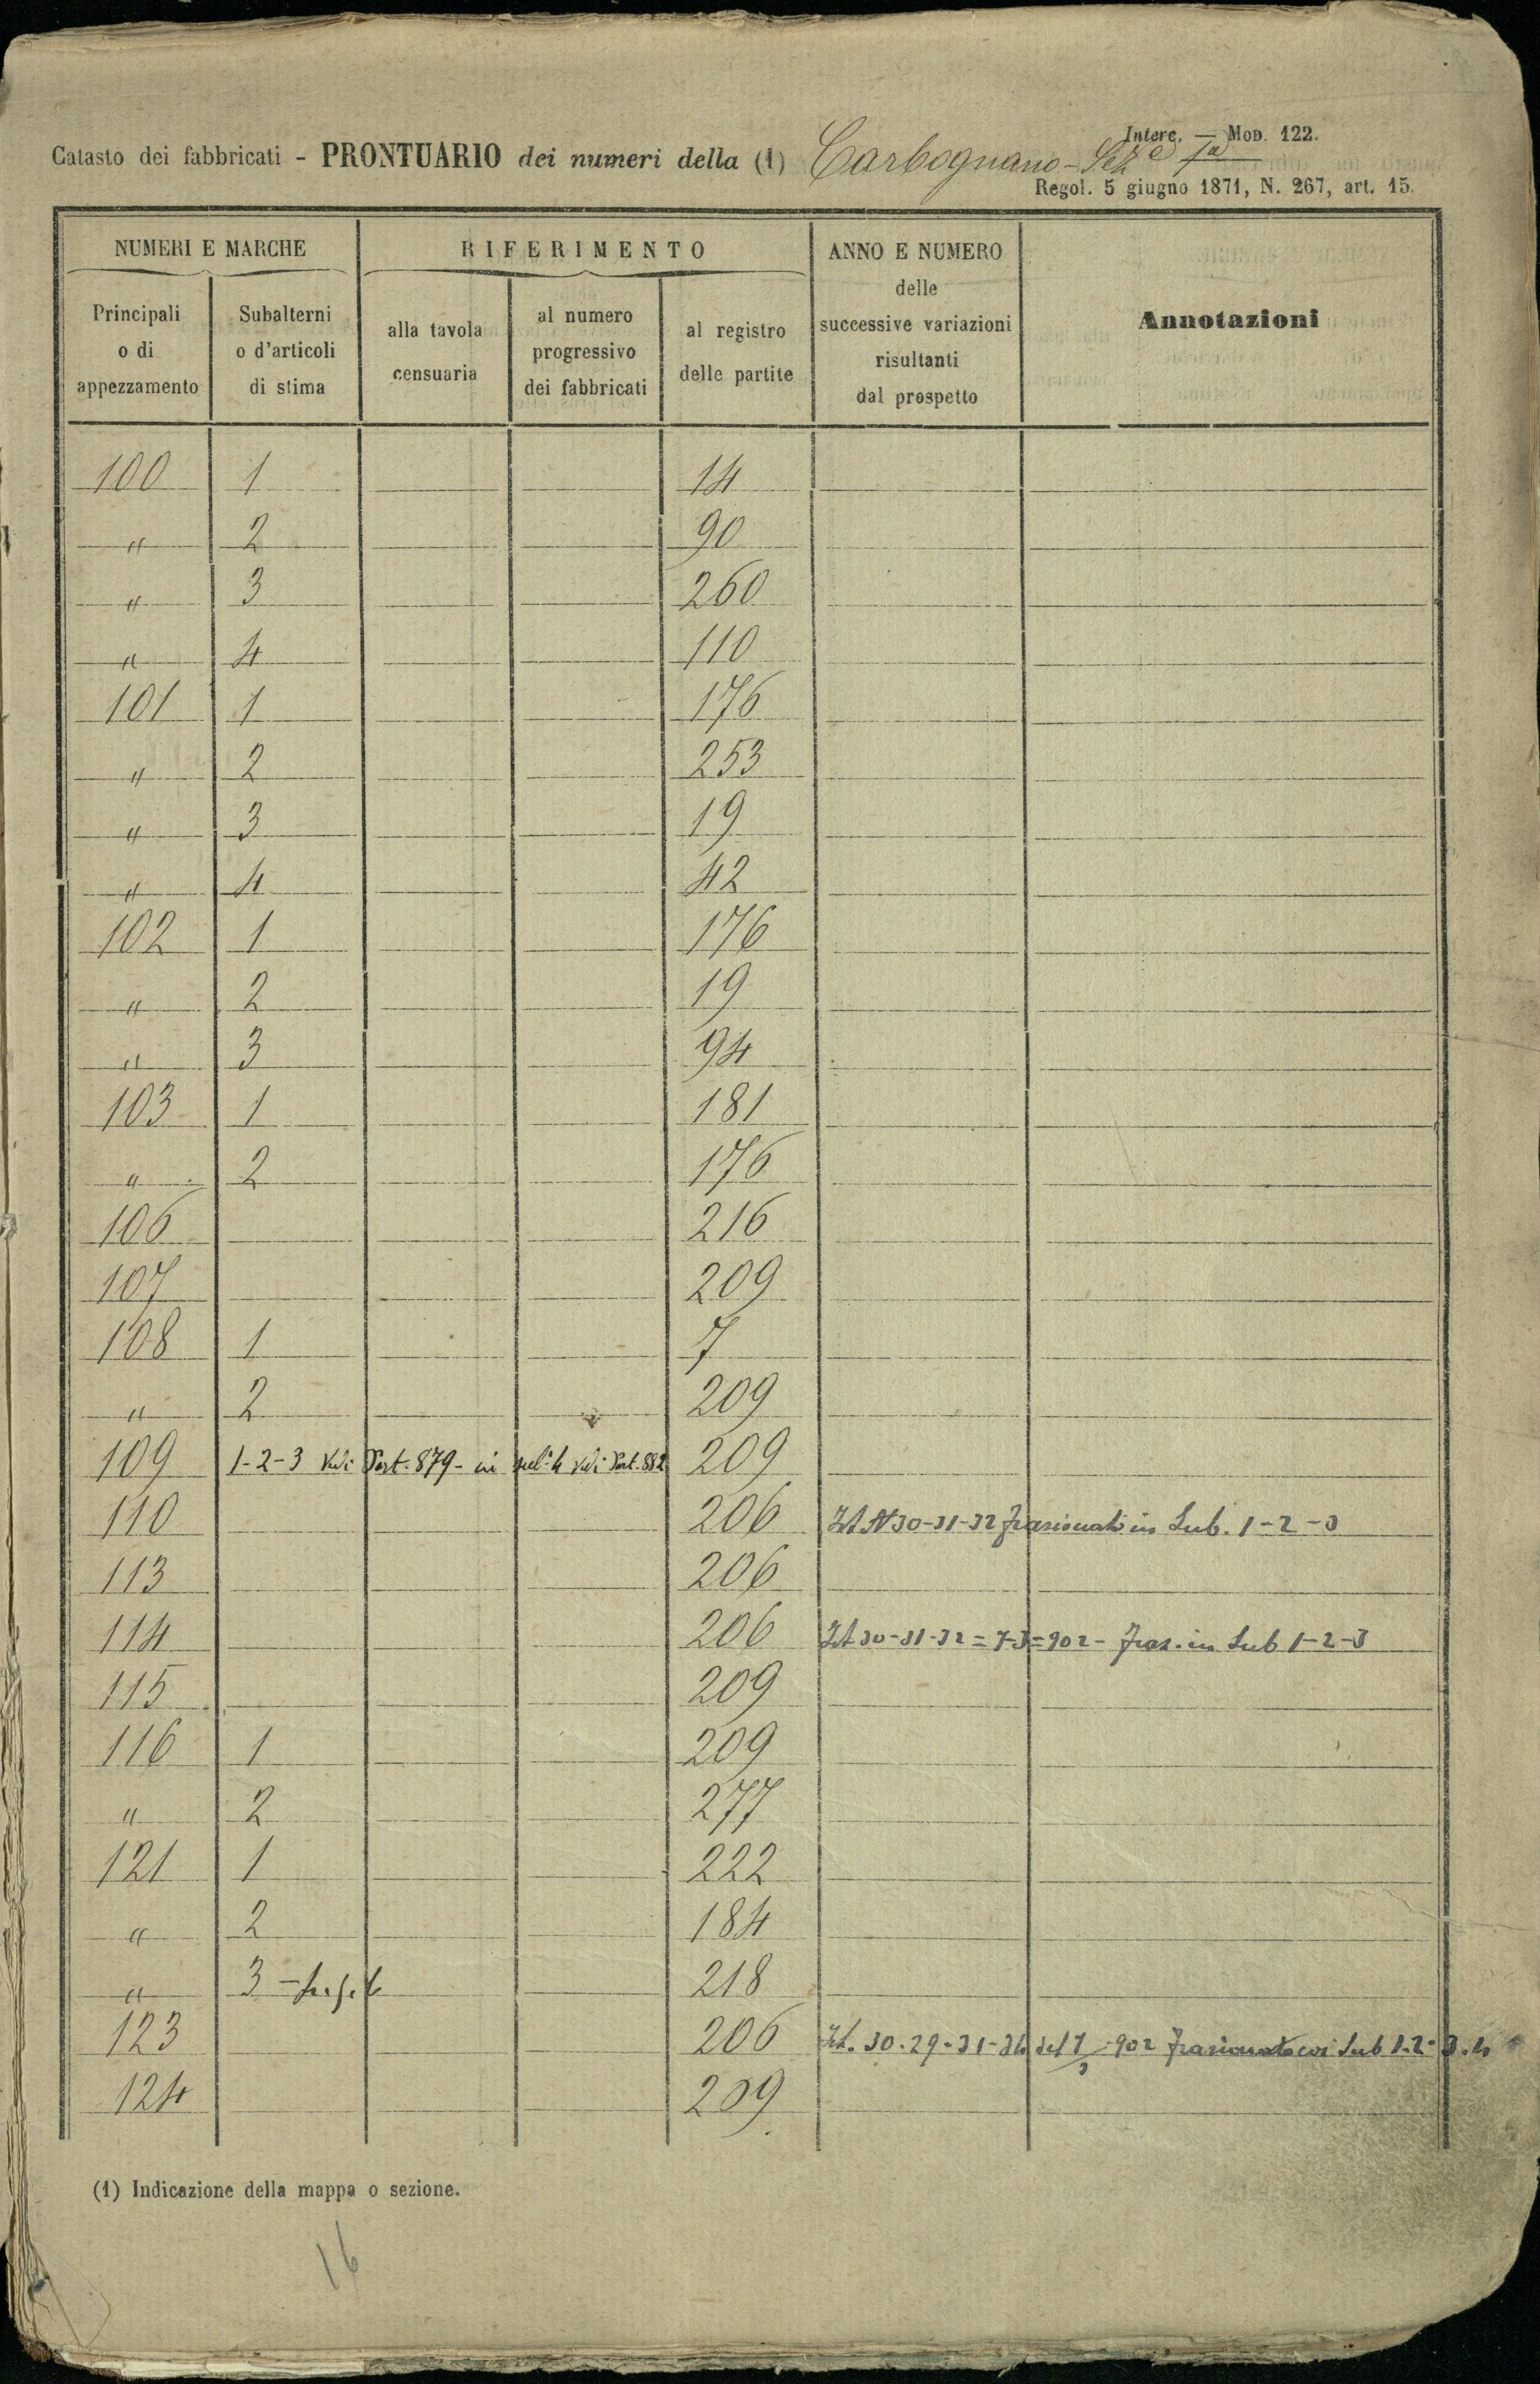 Interc. — Mod. 122.
Catasto dei fabbricati - PRONTUARIO dei numeri della (1) Carbognano - Sez.e 1a
Regol. 5 giugno 1871, N. 267, art. 15.
NUMERI E MARCHE RIFERIMENTO ANNO E NUMERO delle successive variazioni risultanti dal prospetto Annotazioni
Principali o di appezzamento Subalterni o d'articoli di stima alla tavola censuaria al numero progressivo dei fabbricati al registro delle partite
100 1 14
" 2 90
" 3 260
" 4 110
101 1 176
" 2 253
" 3 19
" 4 42
102 1 176
" 2 19
" 3 94
103 1 181
" 2 176
106 216
107 209
108 1 7
" 2 209
109 1-2-3 vedi Part. 879 - in sub. 4 vedi Part. 882 209
110 206 30-31-32 frazionato in Sub. 1-2-3
113 206
114 206 30-31-32 = 902 - fraz. in Sub 1-2-3
115 209
116 1 209
" 2 277
121 1 222
" 2 184
" 3 218
123 206 30-29-31-34 del 902 frazionato Sub 1-2-3-4
124 209
(1) Indicazione della mappa o sezione.
16